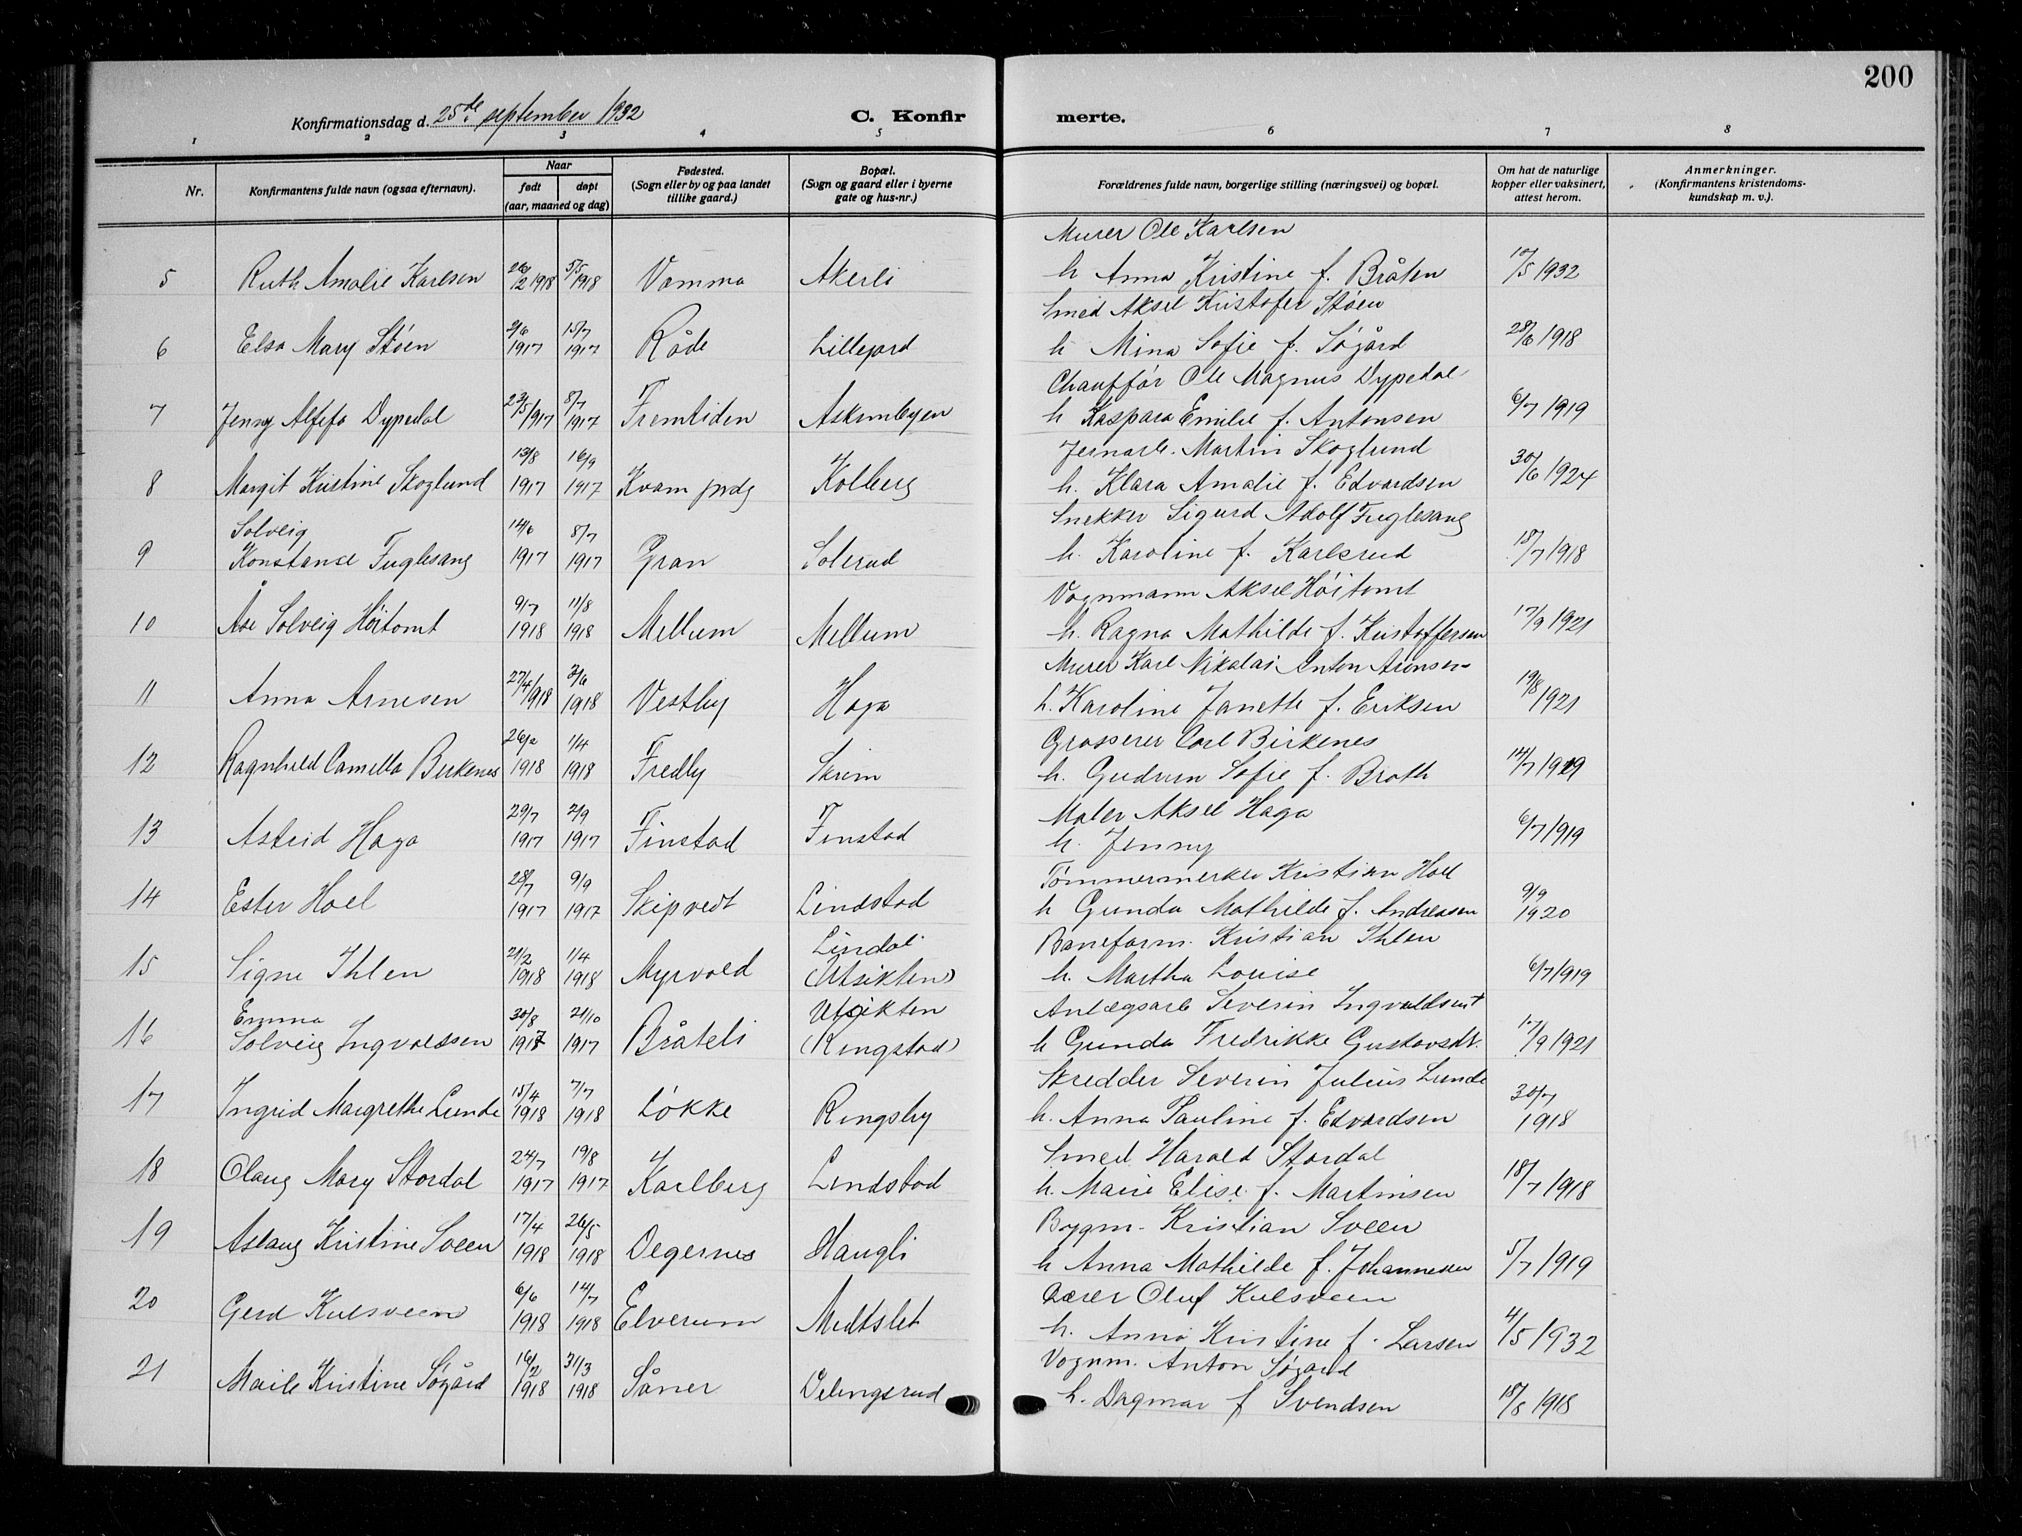 200
Konfirmationsdag d. 25de september 1932
C. Konfirmerte.
1 2 3 4 5 6 7 8
Nr.
Konfirmantens fulde navn (ogsaa efternavn).
Naar
født døpt
(aar, maaned og dag)
Fødested.
(Sogn eller by og paa landet
tillike gaard.)
Bopæl.
(Sogn og gaard eller i byerne
gate og hus-nr.)
Forældrenes fulde navn, borgerlige stilling (næringsvei) og bopæl.
Om hat de naturlige
kopper eller vaksinert,
attest herom.
Anmerkninger.
(Konfirmantens kristendoms-
kundskap m. v.).
Murer Ole Karlsen
5 Ruth Amalie Karlsen 26/2 1918 5/5 1918 Vamma Akerli h Anna Kristine f. Bråten 12/5 1932
Smed Aksel Kristofer Støen
6 Elsa Mary Støen 2/6 1917 15/7 1917 Råde Lillejord h Mina Sofie f. Søgård 28/6 1918
Chauffør Ole Magnus Dypedal
7 Jenny Alfifa Dypedal 23/5 1917 8/7 1917 Fremtiden Askimbyen h Kaspara Emilie f. Antonsen 6/7 1919
Jernarb. Martin Skoglund
8 Margit Kristine Skoglund 13/8 1917 16/9 1917 Kvam prdg Kolberg h. Klara Amalie f. Edvardsen 30/6 1924
Snekker Sigurd Adolf Fuglesang
9 Solveig
Konstanse Fuglesang 14/6 1917 8/7 1917 Gran Solerud h. Karoline f. Karlsrud 18/7 1918
Vognmann Aksel Høitomt
10 Åse Solveig Høitomt 9/7 1918 11/8 1918 Mellum Mellum h. Ragna Mathilde f. Kristoffersen 17/9 1921
Murer Karl Nikolai Anton Aronsen
11 Anna Arnesen 27/4 1918 2/6 1918 Vestby Haga h. Karoline Janette f. Eriksen 19/8 1921
Grosserer Carl Birkenes
12 Ragnhild Camilla Birkenes 26/2 1918 1/4 1918 Fredly Skrim h. Gudrun Sofie f. Broth 14/7 1919
Maler Aksel Haga
13 Astrid Haga 29/7 1917 2/9 1917 Finstad Finstad h. Jenny 6/7 1919
Tømmermerker Kristian Hoel
14 Ester Hoel 28/7 1917 9/9 1917 Skipvedt Lindstad h Gunda Mathilde f. Andreasen 9/9 1920
Baneform. Kristian Ihlen
15 Signe Ihlen 21/2 1918 1/4 1918 Myrvold Lindal
(Utsikten) h. Martha Louise 6/7 1919
Anlægsarb Severin Ingvaldsen
16 Emma
Solveig Ingvaldsen 30/8 1917 21/10 1917 Bråteli Utsikten
(Ringstad) h Gunda Fredrikke Gustavsdt. 17/9 1921
Skredder Severin Julius Lunde
17 Ingrid Margrethe Lunde 15/4 1918 7/7 1918 Løkke Ringsby h. Anna Pauline f. Edvardsen 30/7 1918
Smed Harald Stordal
18 Olaug Mary Stordal 24/7 1917 19/8 1917 Karlberg Lindstad h. Marie Elise f. Martinsen 18/7 1918
Bygm. Kristian Sveen
19 Aslaug Kristine Sveen 17/4 1918 26/5 1918 Degernes Haugli h Anna Mathilde f. Johannesen 5/7 1919
Lærer Oluf Kulsveen
20 Gerd Kulsveen 6/6 1918 14/7 1918 Elverum Midtslet h. Anna Kristine f. Larsen 4/5 1932
Vognm. Anton Søgard
21 Maile Kristine Søgård 16/2 1918 31/3 1918 Såner h. Dagmar f Svendsen 15/8 1918